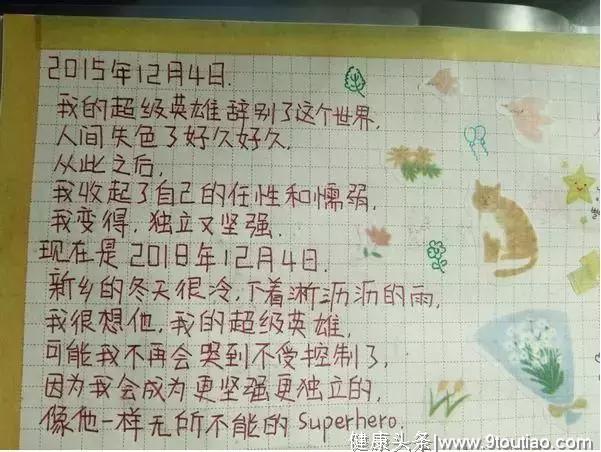 2015年12月4日.
我的超级英雄辞别了这个世界,
人间失色了好久好久.
从此之后,
我收起了自己的任性和懦弱,
我变得,独立又坚强.
现在是2018年12月4日.
新乡的冬天很冷,下着淅沥沥的雨,
我很想他,我的超级英雄,
可能我不再会哭到不受控制了,
因为我会成为更坚强更独立的,
像他一样无所不能的Superhero.
健康头条|www.9toutiao.com